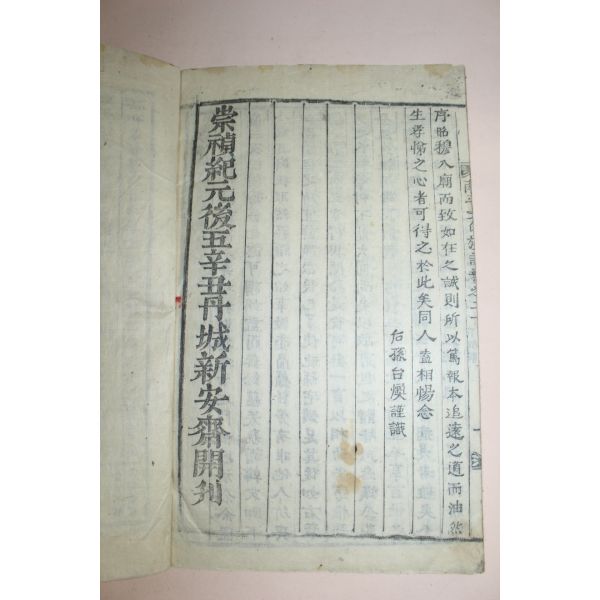 序昭穆入廟而致如在之誠則所以篤報本追遠之道而油然
生孝悌之心者可得之於此矣同人盍相惕念
后孫台煥謹識
崇禎紀元後五辛丑丹城新安齋開刋